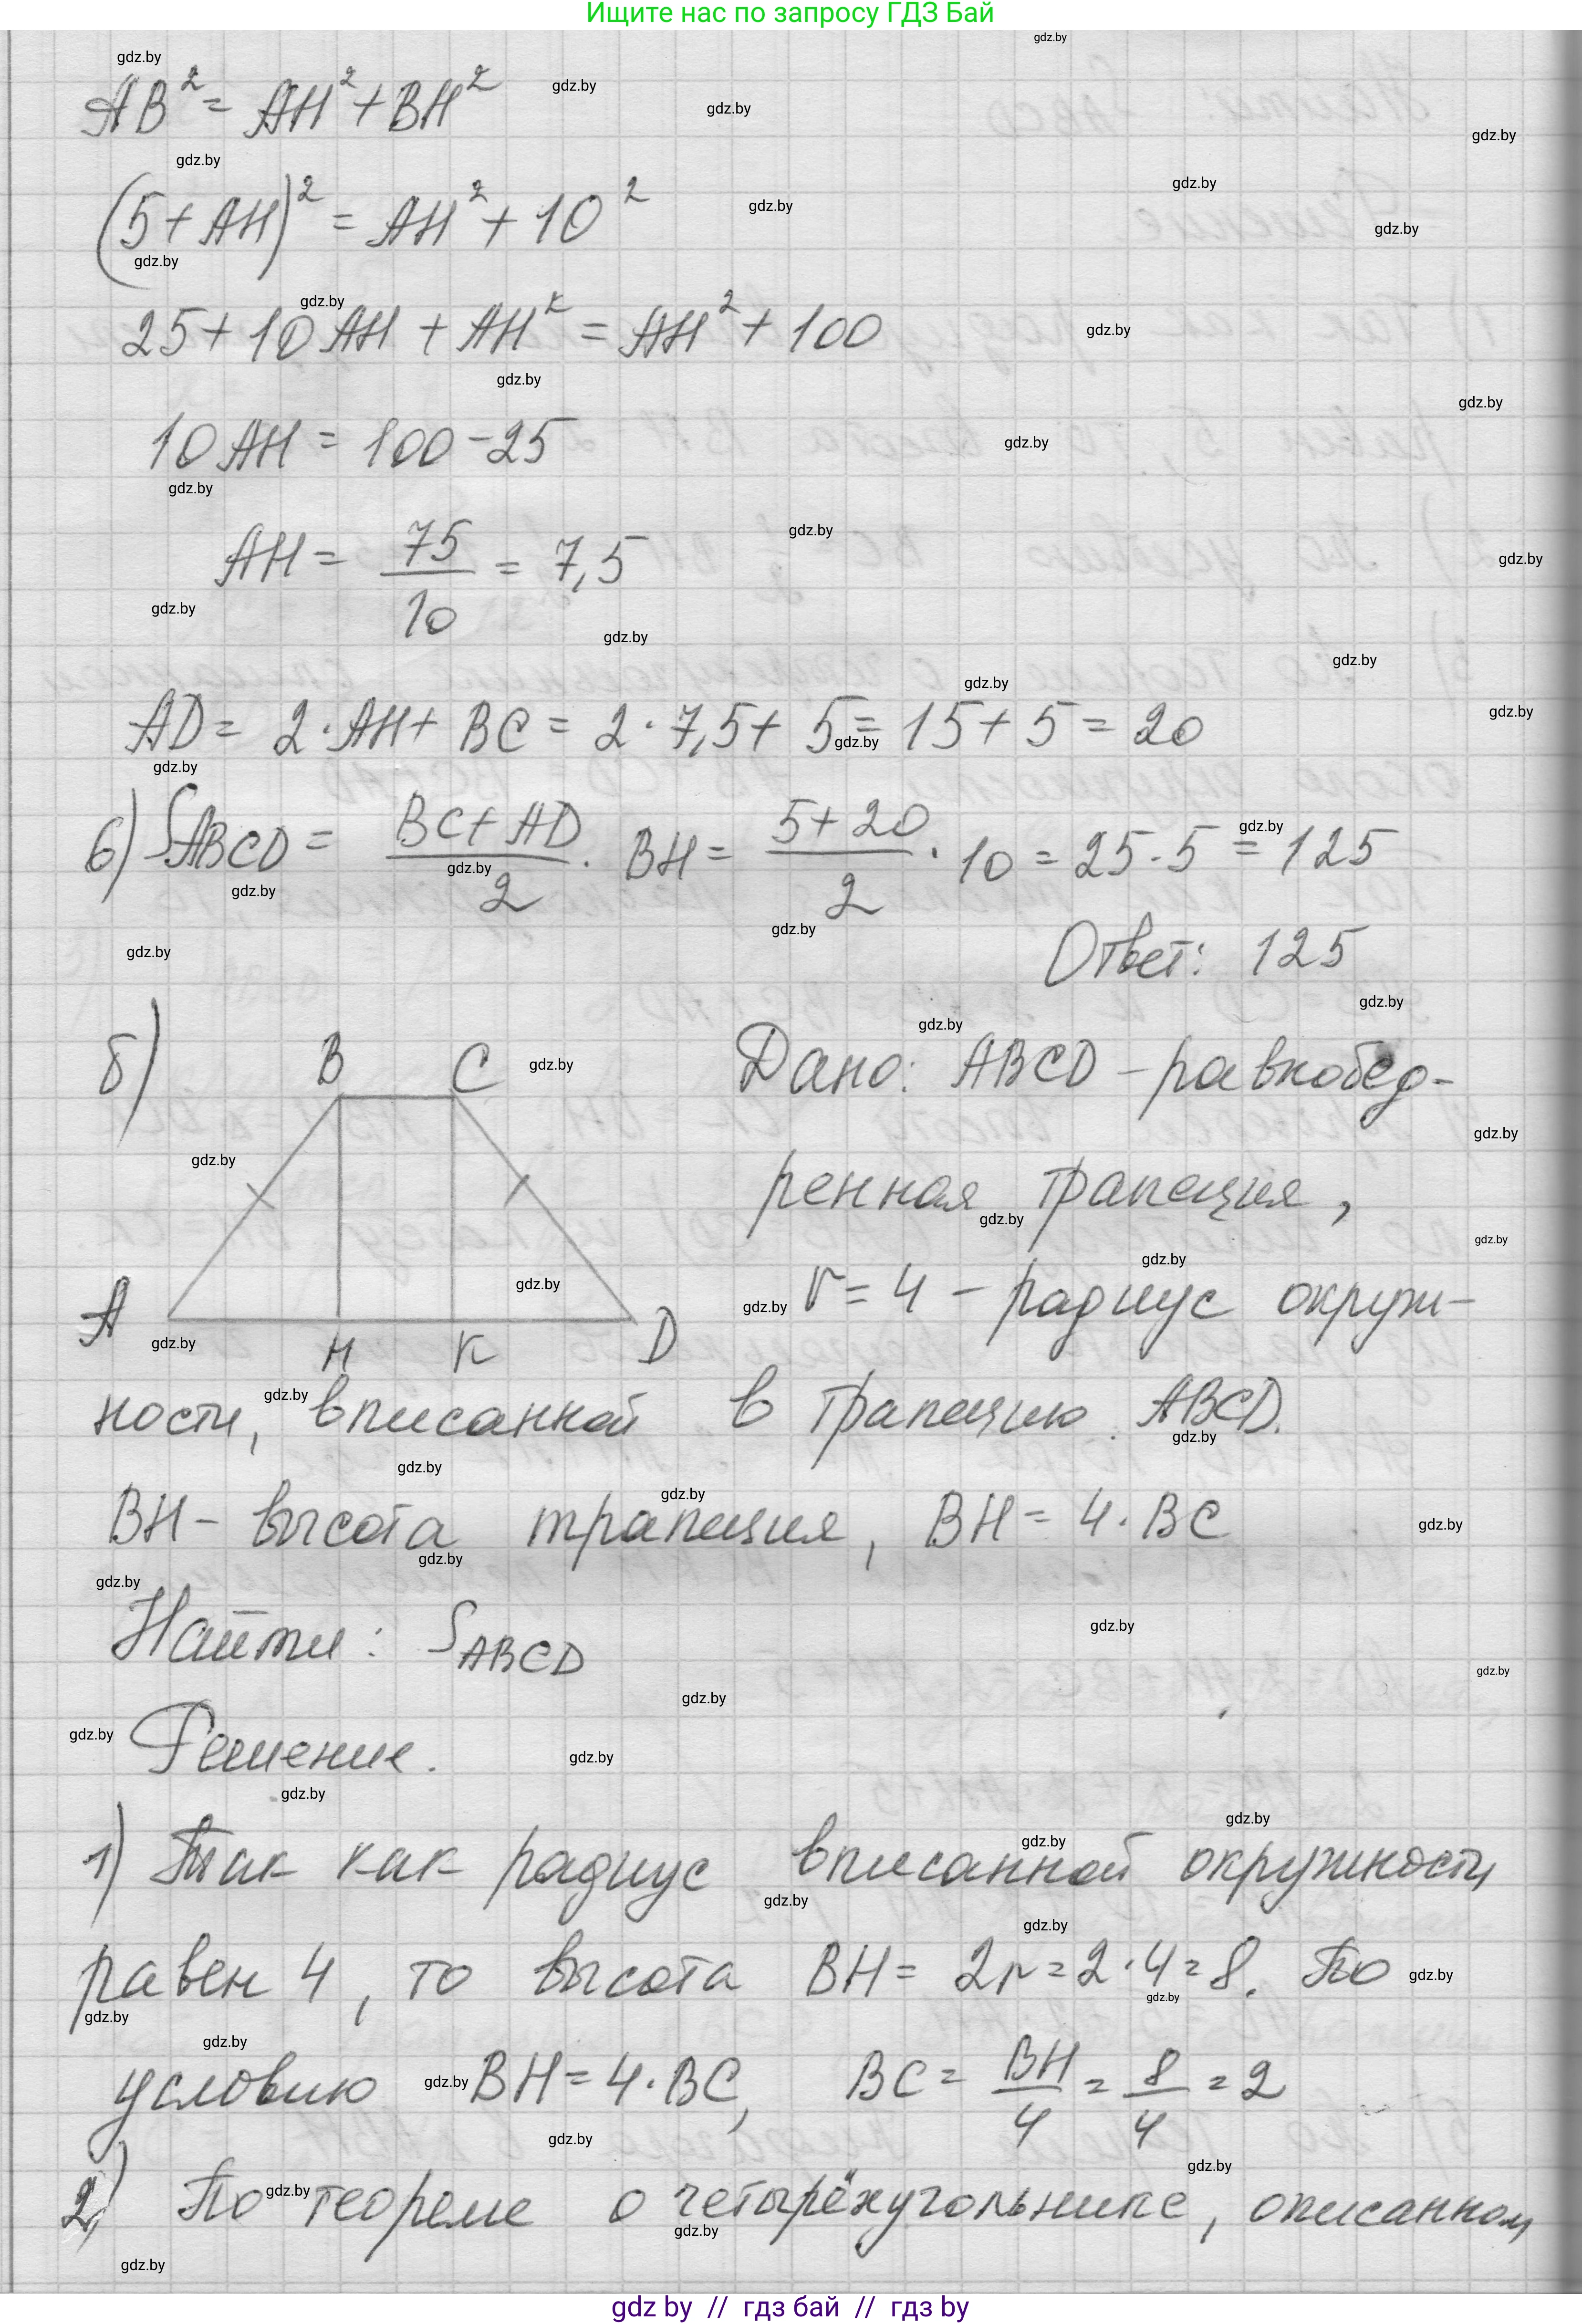 Ищите нас по запросу ГДЗ Бай
AB² = AH² + BH²
(5 + AH)² = AH² + 10²
25 + 10AH + AH² = AH² + 100
10AH = 100 - 25
AH = 75/10 = 7,5
AD = 2 · AH + BC = 2 · 7,5 + 5 = 15 + 5 = 20
6) S_ABCD = (BC + AD)/2 · BH = (5 + 20)/2 · 10 = 25 · 5 = 125
Ответ: 125
б) B C Дано: ABCD – равнобед-
ренная трапеция,
r = 4 – радиус окруж-
A H K D
ности, вписанной в трапецию ABCD.
BH – высота трапеция, BH = 4 · BC
Найти: S_ABCD
Решение.
1) Так как радиус вписанной окружности
равен 4, то высота BH = 2r = 2 · 4 = 8. По
условию BH = 4 · BC, BC = BH/4 = 8/4 = 2
2) По теореме о четырёхугольнике, описанном
gdz by // гдз бай // гдз by